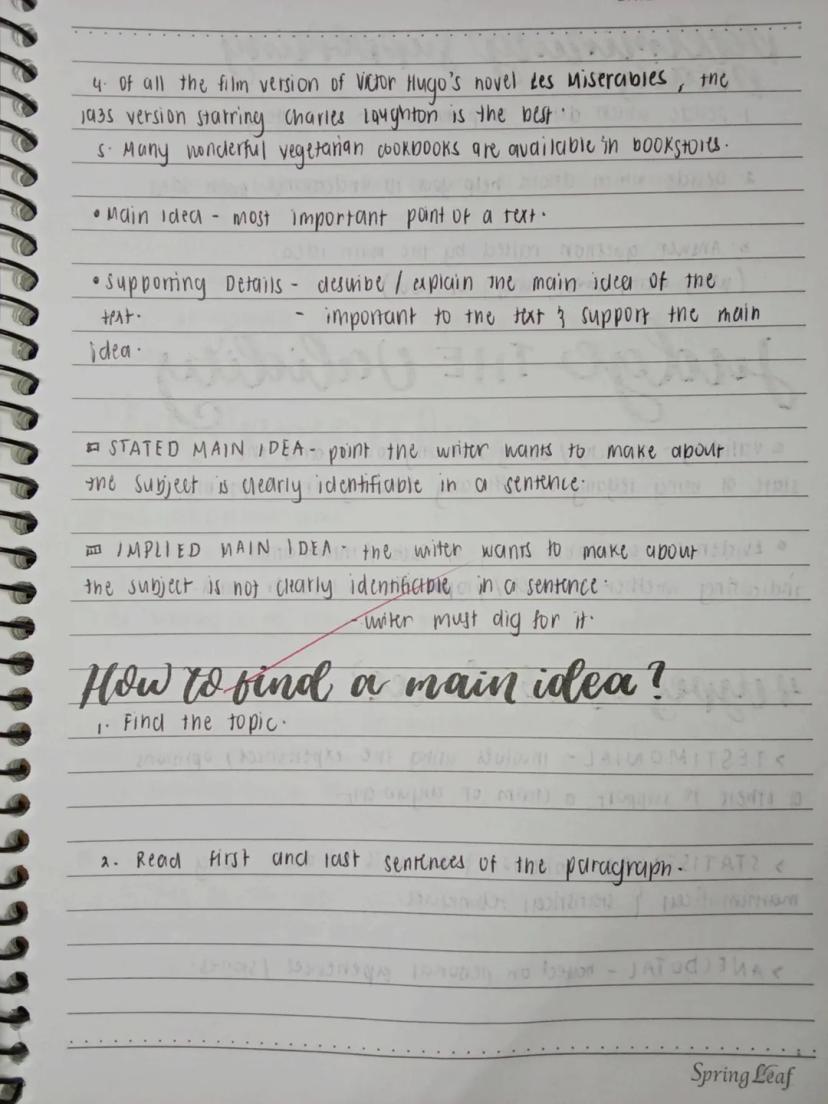 4. Of all the film version of Victor Hugo's novel Les Miserables, the
1935 version starring Charles Laughton is the best.
5. Many wonderful vegetarian cookbooks are available in bookstores.
• Main Idea - most important point of a text.
• Supporting Details - describe / explain the main idea of the
text.
- important to the text & support the main
idea.
STATED MAIN IDEA - point the writer wants to make about
the subject is clearly identifiable in a sentence.
IMPLIED MAIN IDEA - the writer wants to make about
the subject is not clearly identifiable in a sentence.
- writer must dig for it.
How to find a main idea?
1. Find the topic.
2. Read first and last sentences of the paragraph.
Spring Leaf